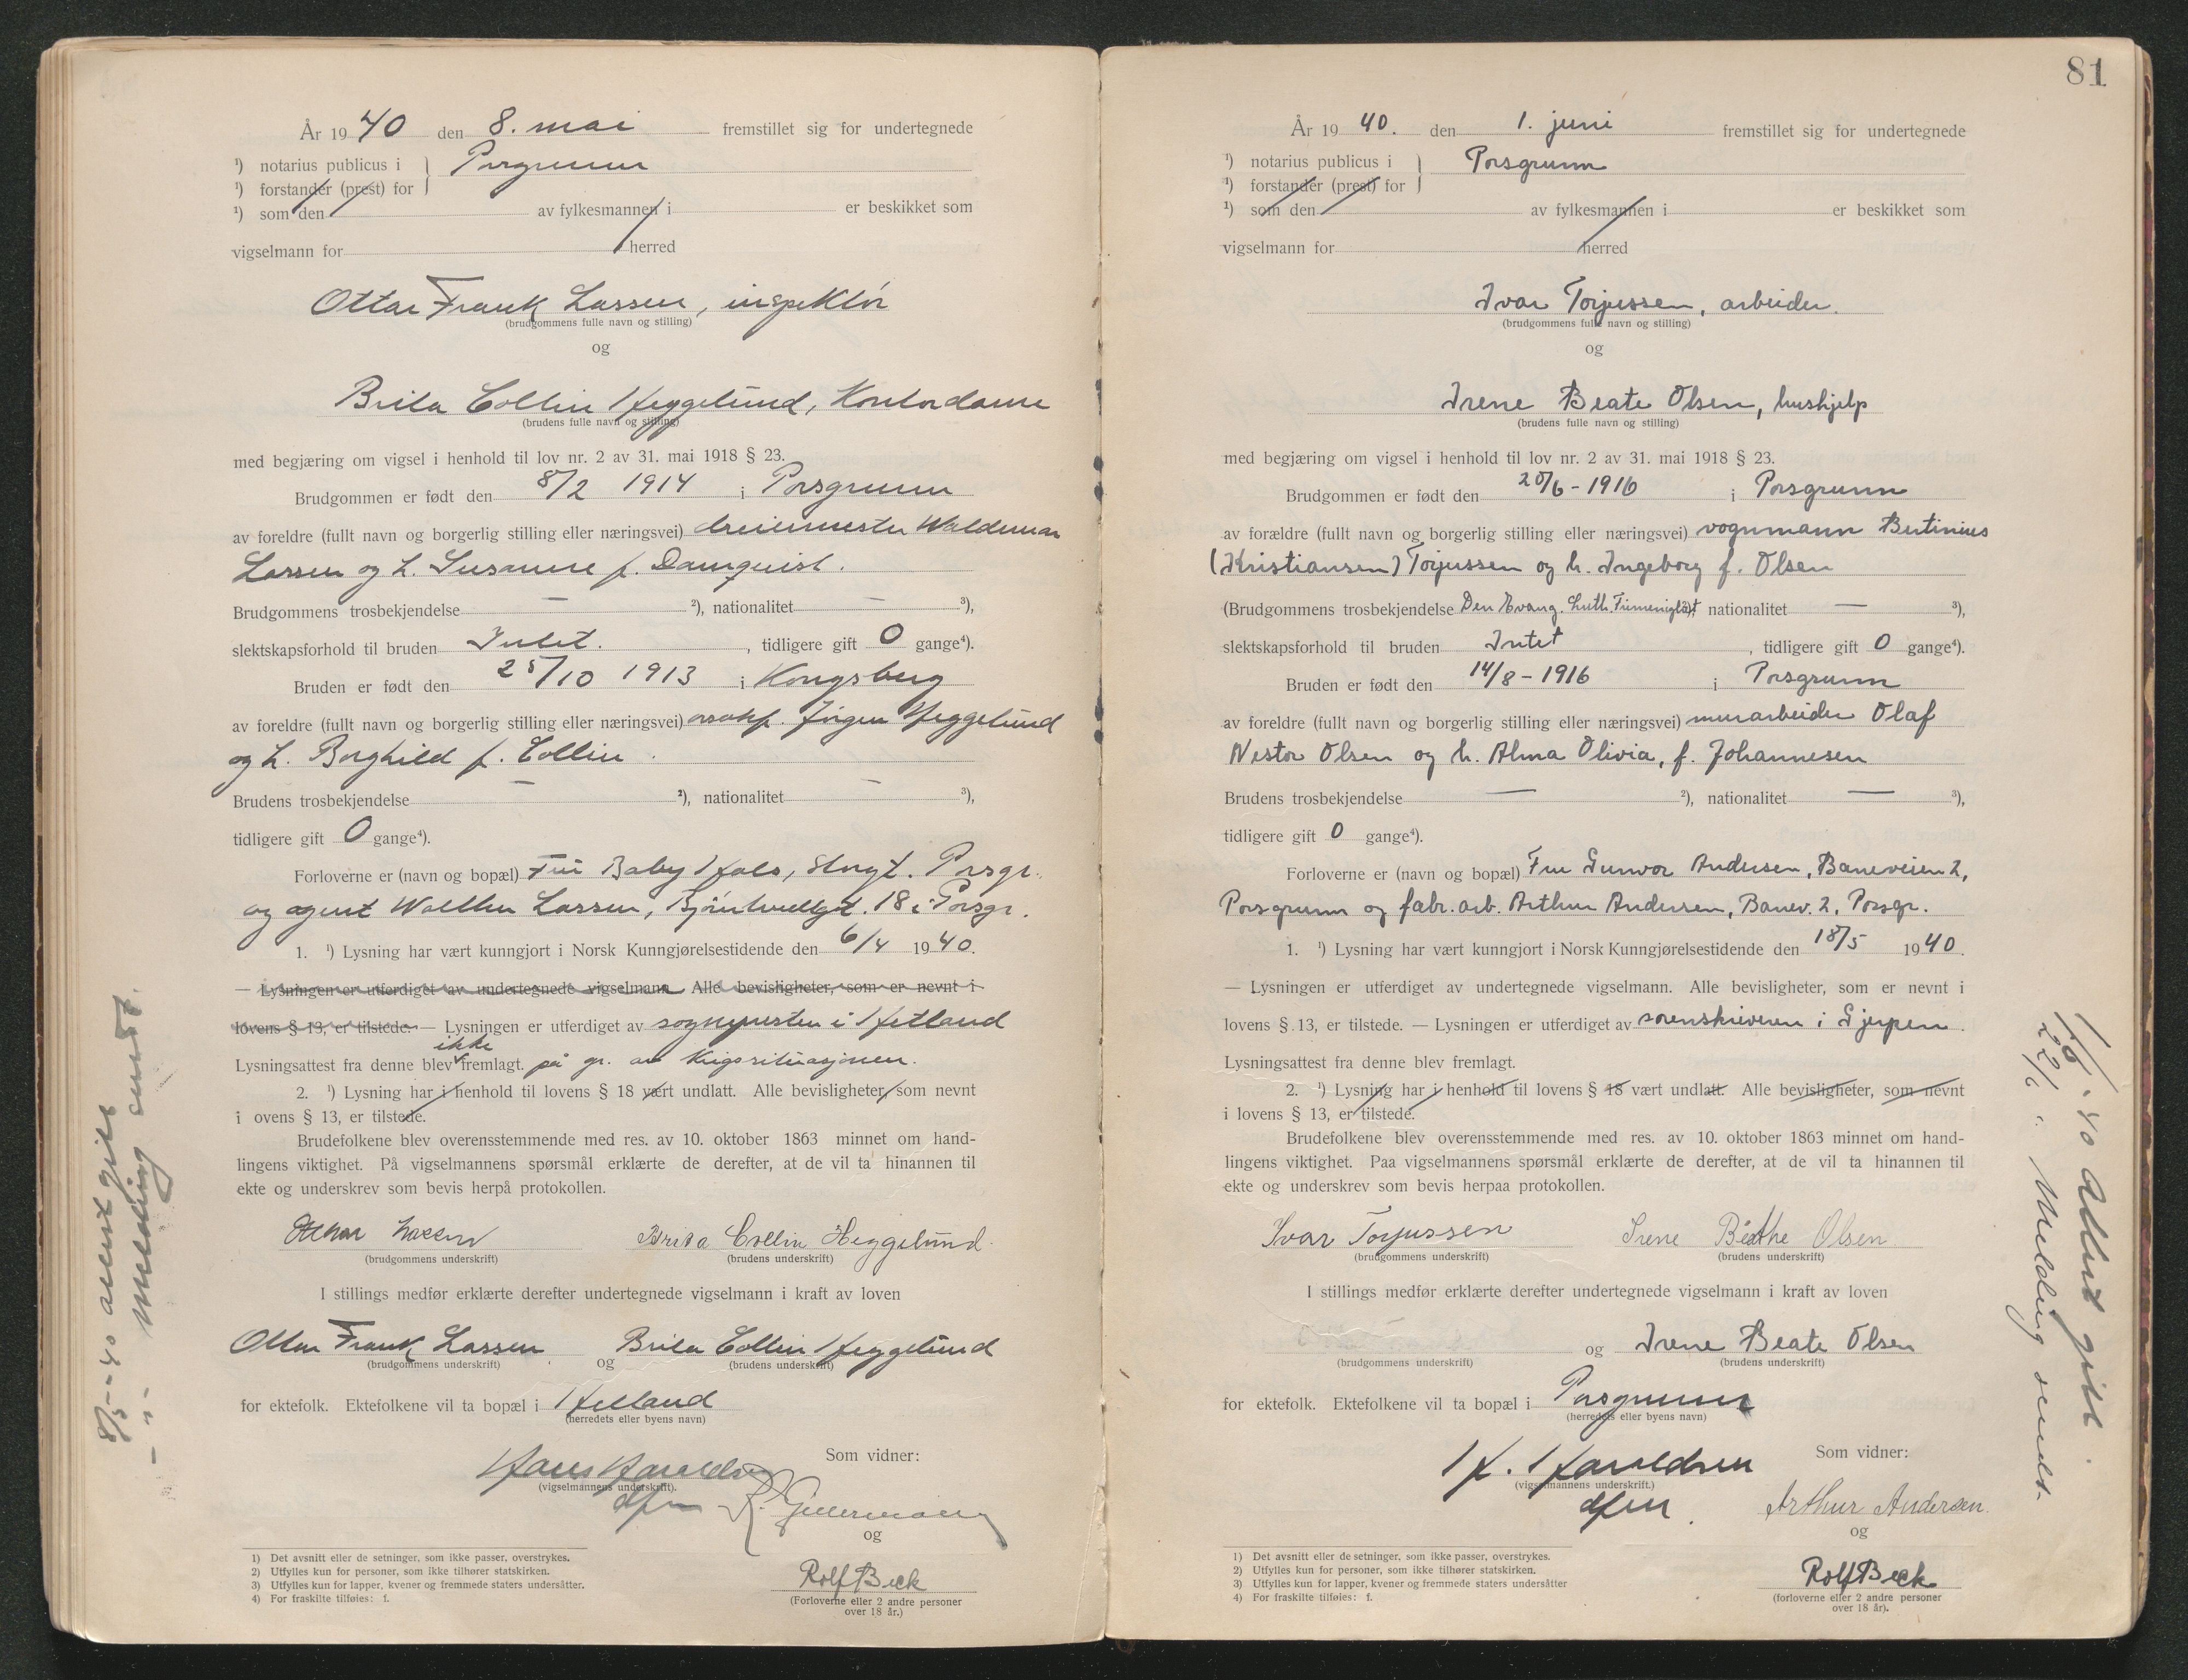 År 1940 den 8. mai fremstillet sig for undertegnede
¹) notarius publicus i Porsgrunn
¹) forstander (prest) for
¹) som den av fylkesmannen i er beskikket som
vigselmann for herred
Ottar Frank Lassen, inspektör
(brudgommens fulle navn og stilling)
og
Brita Collin Heggelund, Kontordame
(brudens fulle navn og stilling)
med begjæring om vigsel i henhold til lov nr. 2 av 31. mai 1918 § 23.
Brudgommen er født den 8/2 1914 i Porsgrunn
av foreldre (fullt navn og borgerlig stilling eller næringsvei) dreiermester Waldemar
Lassen og h. Susanne f. Damquist.
Brudgommens trosbekjendelse — ²), nationalitet — ³),
slektskapsforhold til bruden Intet. , tidligere gift 0 gange⁴).
Bruden er født den 25/10 1913 i Kongsberg
av foreldre (fullt navn og borgerlig stilling eller næringsvei) Jörgen Heggelund
og h. Borghild f. Collin.
Brudens trosbekjendelse — ²), nationalitet — ³),
tidligere gift 0 gange⁴).
Forloverne er (navn og bopæl) Fru Baby Hals, Storgt. Porsgr.
og agent Lassen, 18 i Porsgr.
1. ¹) Lysning har vært kunngjort i Norsk Kunngjørelsestidende den 6/4 1940.
— Lysningen er utferdiget av undertegnede vigselmann Alle bevisligheter, som er nevnt i
lovens § 13, er tilstede. — Lysningen er utferdiget av sognepresten i Hetland
ikke
Lysningsattest fra denne blev fremlagt. på gr. av Krigssituasjonen.
2. ¹) Lysning har i henhold til lovens § 18 vært undlatt. Alle bevisligheter, som nevnt
i ovens § 13, er tilstede.
Brudefolkene blev overensstemmende med res. av 10. oktober 1863 minnet om hand-
lingens viktighet. På vigselmannens spørsmål erklærte de derefter, at de vil ta hinannen til
ekte og underskrev som bevis herpå protokollen.
Ottar Lassen Brita Collin Heggelund.
(brudgommens underskrift) (brudens underskrift)
I stillings medfør erklærte derefter undertegnede vigselmann i kraft av loven
Ottar Frank Lassen og Brita Collin Heggelund
(brudgommens underskrift) (brudens underskrift)
for ektefolk. Ektefolkene vil ta bopæl i Hetland
(herredets eller byens navn)
Som vidner:
Hans Haraldsen
(vigselmannens underskrift).
dfm
og
Rolf Beck
(Forloverne eller 2 andre personer
over 18 år.)
1) Det avsnitt eller de setninger, som ikke passer, overstrykes.
2) Utfylles kun for personer, som ikke tilhører statskirken.
3) Utfylles kun for lapper, kvener og fremmede staters undersåtter.
4) For fraskilte tilføies: f.
8/5-40 attest gitt
— " — Melding sendt.
81
År 1940. den 1. juni fremstillet sig for undertegnede
¹) notarius publicus i Porsgrunn
¹) forstander (prest) for
¹) som den av fylkesmannen i er beskikket som
vigselmann for herred
Ivar Torjussen, arbeider.
(brudgommens fulle navn og stilling)
og
Irene Beate Olsen, hushjelp
(brudens fulle navn og stilling)
med begjæring om vigsel i henhold til lov nr. 2 av 31. mai 1918 § 23.
Brudgommen er født den 20/6 - 1916 i Porsgrunn
av forældre (fullt navn og borgerlig stilling eller næringsvei) vognmann Bertinius
(Kristiansen) Torjussen og h. Ingeborg f. Olsen
(Brudgommens trosbekjendelse Den Evang. Luth. Frimenighet ²), nationalitet — ³),
slektskapsforhold til bruden Intet , tidligere gift 0 gange⁴).
Bruden er født den 14/8 - 1916 i Porsgrunn
av foreldre (fullt navn og borgerlig stilling eller næringsvei) murarbeider Olaf
Nestor Olsen og h. Alma Olivia, f. Johannesen
Brudens trosbekjendelse — ²), nationalitet — ³),
tidligere gift 0 gange⁴).
Forloverne er (navn og bopæl) Fru Gunvor Andersen, Baneveien 2,
Porsgrunn og fabr. arb. Arthur Andersen, Banev. 2, Porsgr.
1. ¹) Lysning har vært kunngjort i Norsk Kunngjørelsestidende den 18/5 1940.
— Lysningen er utferdiget av undertegnede vigselmann. Alle bevisligheter, som er nevnt i
lovens § 13, er tilstede. — Lysningen er utferdiget av sorenskriveren i Gjerpen.
Lysningsattest fra denne blev fremlagt.
2. ¹) Lysning har i henhold til lovens § 18 vært undlatt. Alle bevisligheter, som nevnt
i lovens § 13, er tilstede.
Brudefolkene blev overensstemmende med res. av 10. oktober 1863 minnet om hand-
lingens viktighet. Paa vigselmannens spørsmål erklærte de derefter, at de vil ta hinannen til
ekte og underskrev som bevis herpaa protokollen.
Ivar Torjussen Irene Beathe Olsen
(brudgommens underskrift) (brudens underskrift)
I stillings medfør erklærte derefter undertegnede vigselmann i kraft av loven
og Irene Beate Olsen
(brudgommens underskrift) (brudens underskrift)
for ektefolk. Ektefolkene vil ta bopæl i Porsgrunn
(herredets eller byens navn)
Som vidner:
H. Haraldsen
(vigselmannens underskrift.)
dfm. Arthur Andersen.
og
Rolf Beck
(forloverne eller 2 andre personer
over 18 år).
1) Det avsnitt eller de setninger, som ikke passer, overstrykes.
2) Utfylles kun for personer, som ikke tilhører statskirken.
3) Utfylles kun for lapper, kvener og fremmede staters undersåtter
4) For fraskilte tilføies: f.
1/6.40 Attest gitt.
22/6 " Melding sendt.